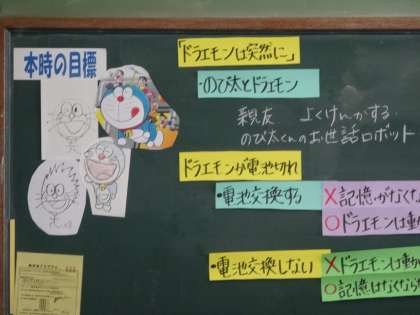 本時の目標
「ドラエモンは突然に」
・のび太とドラエモン
親友 よくけんかする
のび太くんのお世話ロボット
ドラエモンが電池切れ
・電池交換する
×記憶がなくな
○ドラエモンは動か
・電池交換しない
×ドラエモンは動か
○記憶はなくなら